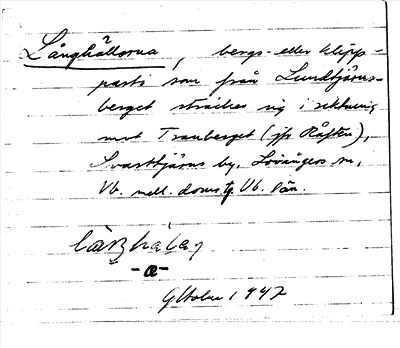 Långhällorna, bergs- eller klipp-
parti som från Lundtjärns-
berget sträcker sig i riktning
mot Tranberget (jfr Råften),
Svarttjärns by, Lövångers sn,
Vb. mell. doms. Vb. län.
-a-
1942